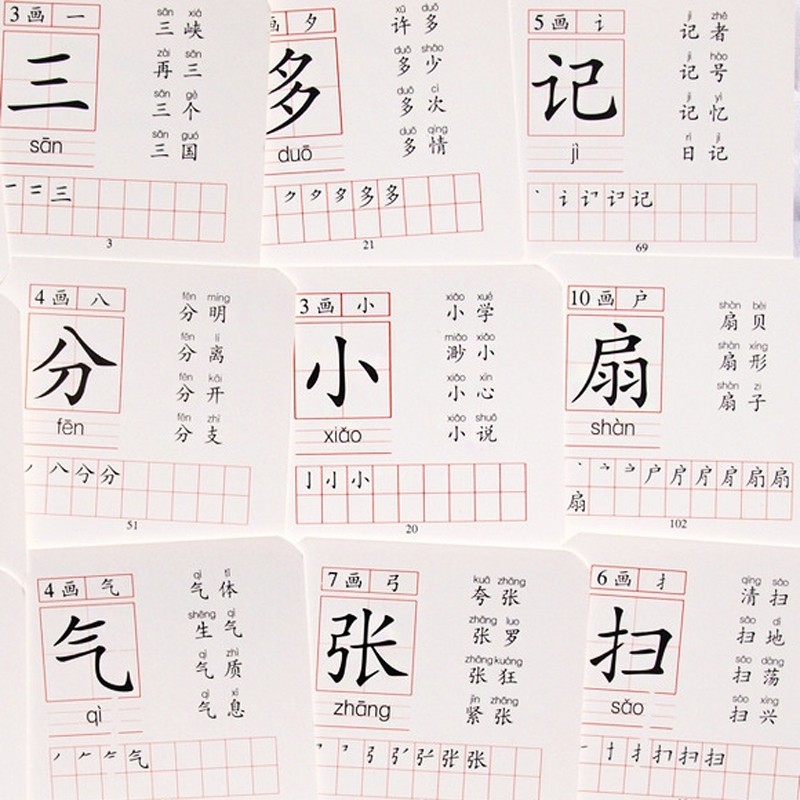 3画 一
三
sān
sān xiá
三峡
zài sān
再三
sān gè
三个
sān guó
三国
一 二 三
3
画 夕
多
duō
xǔ duō
许多
duō shǎo
多少
duō cì
多次
duō qíng
多情
21
5画 讠
记
jì
jì zhě
记者
jì hào
记号
jì yì
记忆
rì jì
日记
69
4画 八
分
fēn
fēn míng
分明
fēn lí
分离
fēn kāi
分开
fēn zhī
分支
51
3画 小
小
xiǎo
xiǎo xué
小学
miǎo xiǎo
渺小
xiǎo xīn
小心
xiǎo shuō
小说
20
10画 户
扇
shàn
shàn bèi
扇贝
shàn xíng
扇形
shàn zi
扇子
102
4画 气
气
qì
qì tǐ
气体
shēng qì
生气
qì zhì
气质
qì xī
气息
7画 弓
张
zhāng
kuā zhāng
夸张
zhāng luo
张罗
zhāng kuáng
张狂
jǐn zhāng
紧张
6画 扌
扫
sǎo
qīng sǎo
清扫
sǎo dì
扫地
sǎo dàng
扫荡
sǎo xìng
扫兴